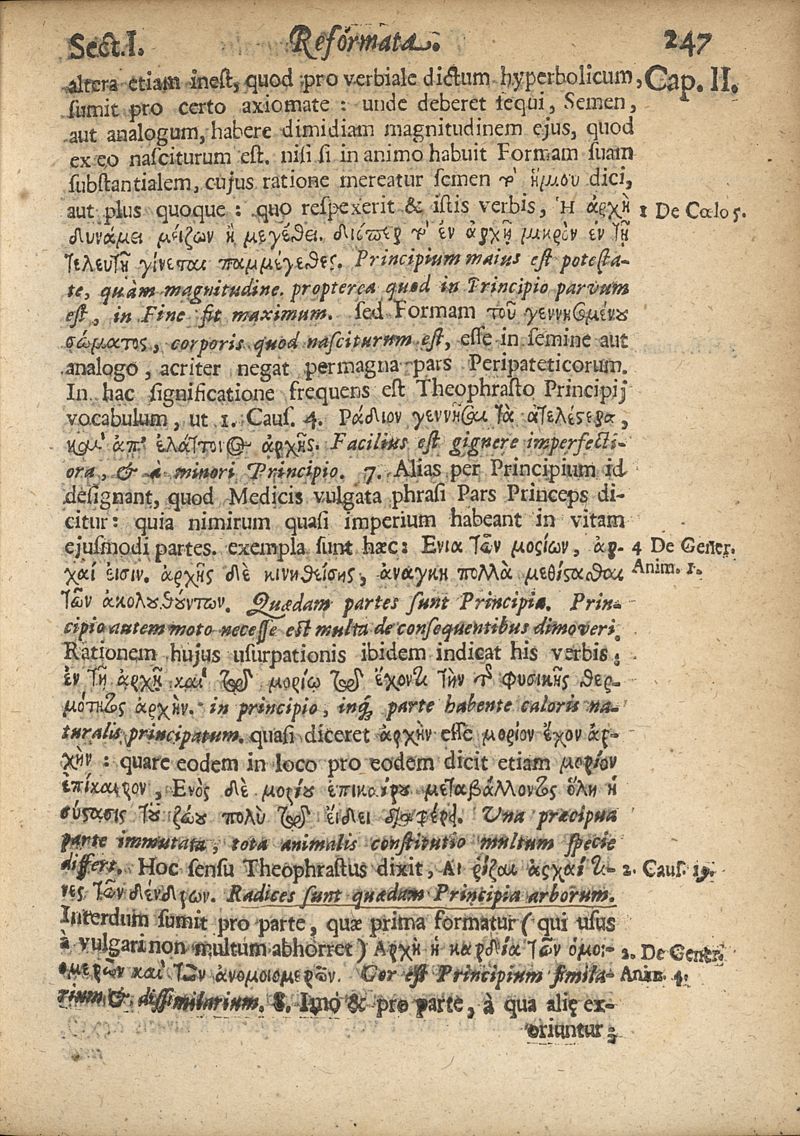 Sect. I. Reformata. 247
altera etiam inest, quod pro verbiale dictum hyperbolicum, Cap. II.
sumit pro certo axiomate : unde deberet sequi, Semen,
aut analogum, habere dimidiam magnitudinem ejus, quod
ex eo nasciturum est. nisi si in animo habuit Formam suam
substantialem, cujus ratione mereatur semen τȣ͂ ἥμισυ dici,
aut plus quoque : quo respexerit & istis verbis, Ἡ ἀρχὴ 1 De Cœlo 5.
δυνάμει μείζων ἢ μεγέθει. διόπερ τὸ ἐν ἀρχῇ μικρὸν ἐν τῇ
τελευτῇ γίνεται παμμέγεθες. Principium maius est potesta-
te, quàm magnitudine. propterea quod in Principio parvum
est, in Fine fit maximum. sed Formam τοῦ γεννησομένου
σώματος, corporis quod nasciturum est, esse in semine aut
analogo, acriter negat permagna pars Peripateticorum.
In hac significatione frequens est Theophrasto Principij
vocabulum, ut 1. Caus. 4. Ράδιον γεννῆσαι τὰ ἀτελέστερα,
καὶ ἀπ' ἐλάττονος ἀρχῆς. Facilius est gignere imperfecti-
ora, & à minori Principio. 7. Alias per Principium id
designant, quod Medicis vulgata phrasi Pars Princeps di-
citur: quia nimirum quasi imperium habeant in vitam
ejusmodi partes. exempla sunt hæc: Ενια τῶν μορίων, ἀρ- 4 De Gener.
χαί εἰσιν. ἀρχῆς δὲ κινηθείσης, ἀνάγκη πολλὰ μεθίστασθαι Anim. 1.
τῶν ἀκολȣθȣ́ντων. Quædam partes sunt Principia. Prin-
cipio autem moto necesse est multa de consequentibus dimoveri.
Rationem hujus usurpationis ibidem indicat his verbis :
ἐν τῇ ἀρχῇ καὶ τῷ μορίῳ τῷ ἔχοντι τὴν τῆς φυσικῆς θερ-
μότητος ἀρχήν. in principio, inq; parte habente caloris na-
turalis principatum. quasi diceret ἀρχὴν esse μόριον ἔχον ἀρ-
χήν : quare eodem in loco pro eodem dicit etiam μορίον
ἐπίκαιρον, Ενὸς δὲ μορίȣ ἐπικαίρȣ μεταβάλλοντος ὅλη ἡ
σύστασις τȣ͂ ζώȣ πολὺ τῷ εἴδει διαφέρει. Una præcipua
parte immutata, tota animalis constitutio multum specie
differt. Hoc sensu Theophrastus dixit, Αἱ ρίζαι ἀρχαί τι- 2. Caus. 19.
νες τῶν δένδρων. Radices sunt quædam Principia arborum.
Interdum sumit pro parte, quæ prima formatur (qui usus
à vulgari non multum abhorret) Αρχὴ ἡ καρδία τῶν ὁμοι- 2. De Gener.
ομερῶν καὶ τῶν ἀνομοιομερῶν. Cor est Principium simila- Anim. 4.
rium & dissimilarium. 8. Imo & pro parte, à qua aliæ ex-
oriuntur;